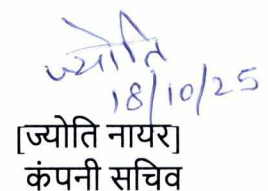 ज्योति
18/10/25
[ज्योति नायर]
कंपनी सचिव